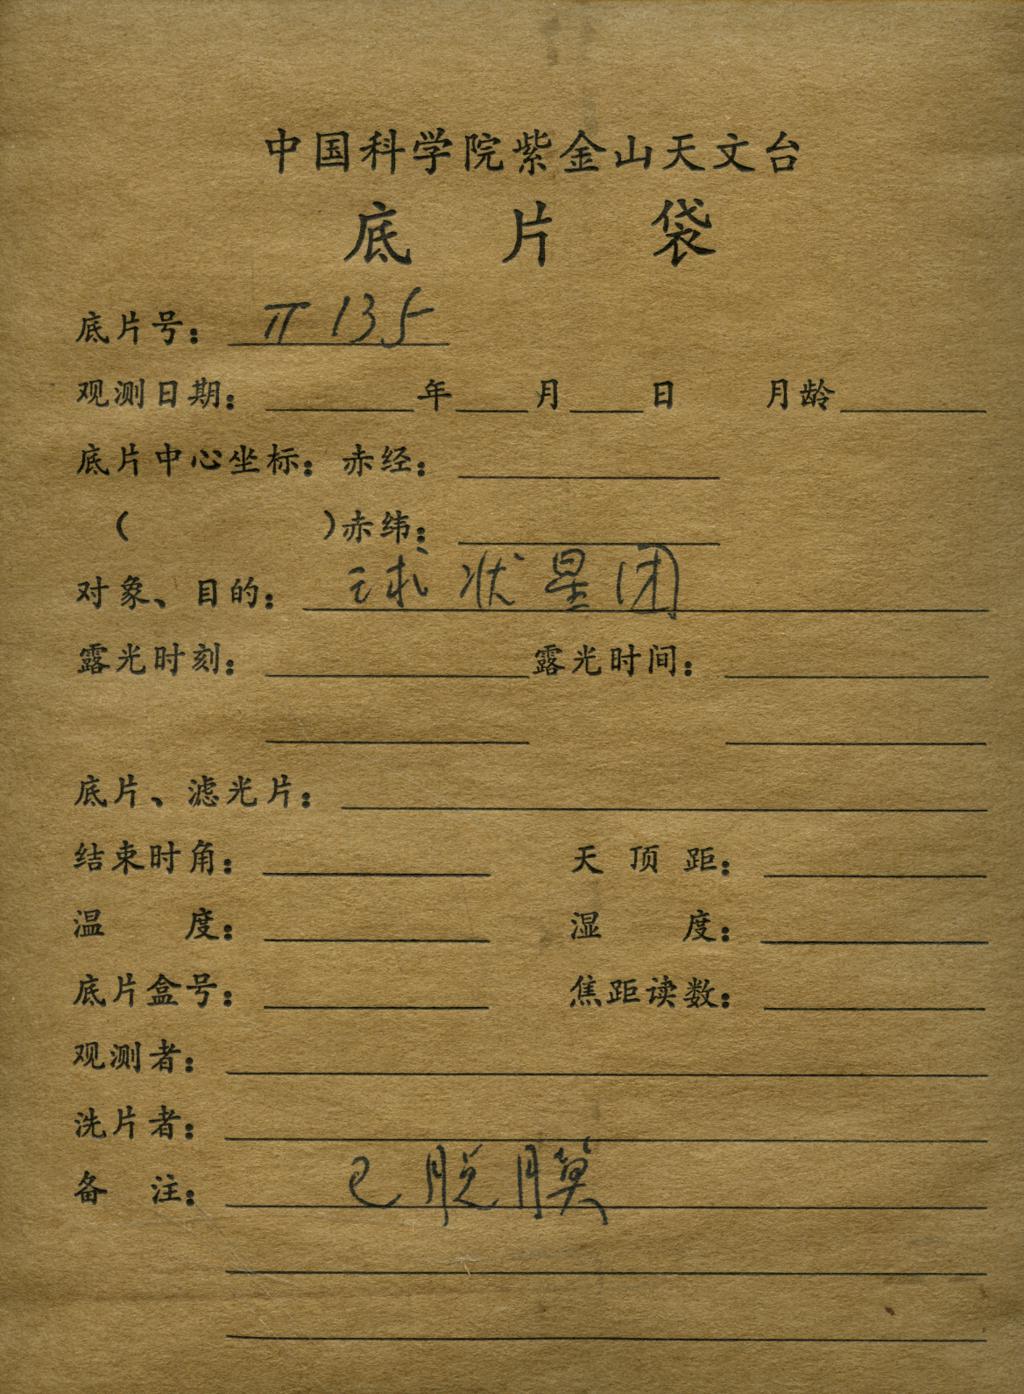 中国科学院紫金山天文台
底片袋
底片号：π135
观测日期：年月日 月龄
底片中心坐标：赤经：
（ ）赤纬：
对象、目的：球状星团
露光时刻： 露光时间：
底片、滤光片：
结束时角： 天顶距：
温度： 湿度：
底片盒号： 焦距读数：
观测者：
洗片者：
备注：已脱膜